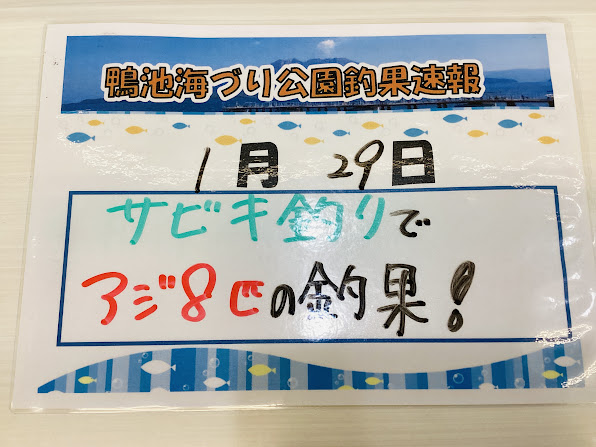 鴨池海づり公園釣果速報
1月 29日
サビキ釣りで
アジ8匹の釣果!